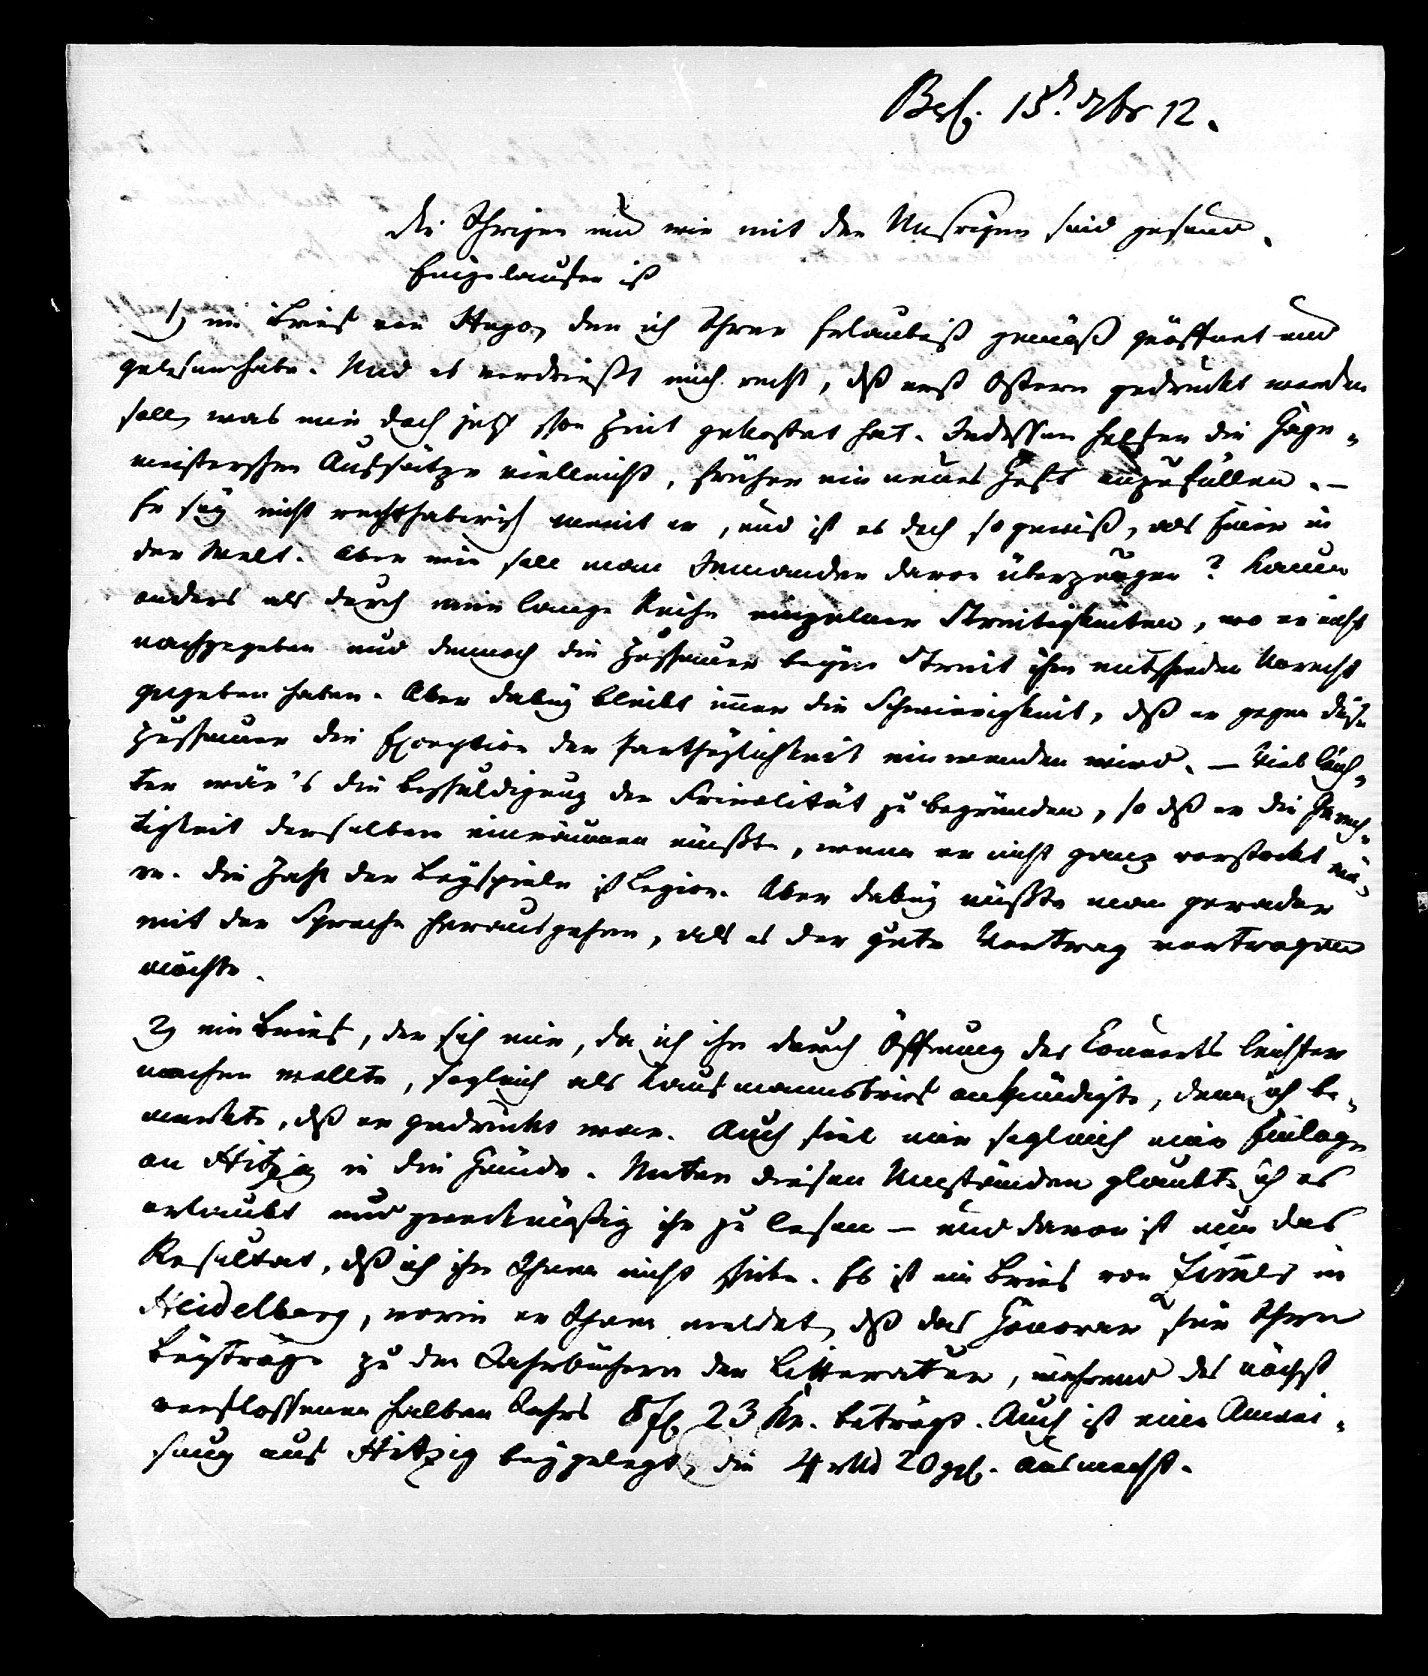 Berl. 15. 7br 12.
die Ihrigen und wir mit den Unsrigen sind gesund.
Eingelaufen ist
1, ein Brief von Hugo, den ich Ihrer Erlaubniß gemäß geöffnet und
gelesen habe. Und es verdrießt mich recht, dß erst Ostern gedruckt werden
soll, was mir doch jetzt schon Zeit gekostet hat. Indessen helfen die Hage-
meisterschen Aufsätze vielleicht, früher ein neues Heft anzufüllen. –
Er sey nicht rechthaberisch meint er, und ist es doch so gewiß, als Einer in
der Welt. Aber wie soll man Jemanden davon überzeugen? Kaum
anders als durch eine lange Reihe einzelner Streitigkeiten, wo er nicht
nachgegeben und dennoch die Zuschauer beym Streit ihm entschieden Unrecht
gegeben haben. Aber dabey bleibt immer die Schwierigkeit, dß er gegen diese
Zuschauer die Exception der Partheylichkeit einwenden wird. – Viel leich-
ter wär's die Beschuldigung der Frivolität zu begründen, so dß er die Gerech-
tigkeit derselben einräumen müßte, wenn er nicht ganz verstockt wä-
re. die Zahl der Beyspiele ist Legion. Aber dabey müßte man gerader
mit der Sprache herausgehen, als es der gute Vertrag vertragen
möchte.
2, ein Brief, der sich mir, da ich ihn durch Öffnung des Couverts leichter
machen wollte, sogleich als Kaufmannsbrief ankündigte, denn ich be-
merkte, dß er gedruckt war. Auch fiel mir sogleich eine Einlage
an Hitzig in die Hände. Unter diesen Umständen glaubte ich es
erlaubt und zweckmäßig ihn zu lesen – und davon ist nun das
Resultat, dß ich ihn Ihnen nicht schicke. Es ist ein Brief von Zimmer in
Heidelberg, worin er Ihnen meldet, dß das Honorar für Ihre
Beyträge zu den Jahrbüchern der Litteratur, während des nächst
verflossenen halben Jahrs 8 fl. 23 Kr. beträgt. Auch ist eine Anwei-
sung auf Hitzig beygelegt, die 4 rtld 20 gl. ausmacht.